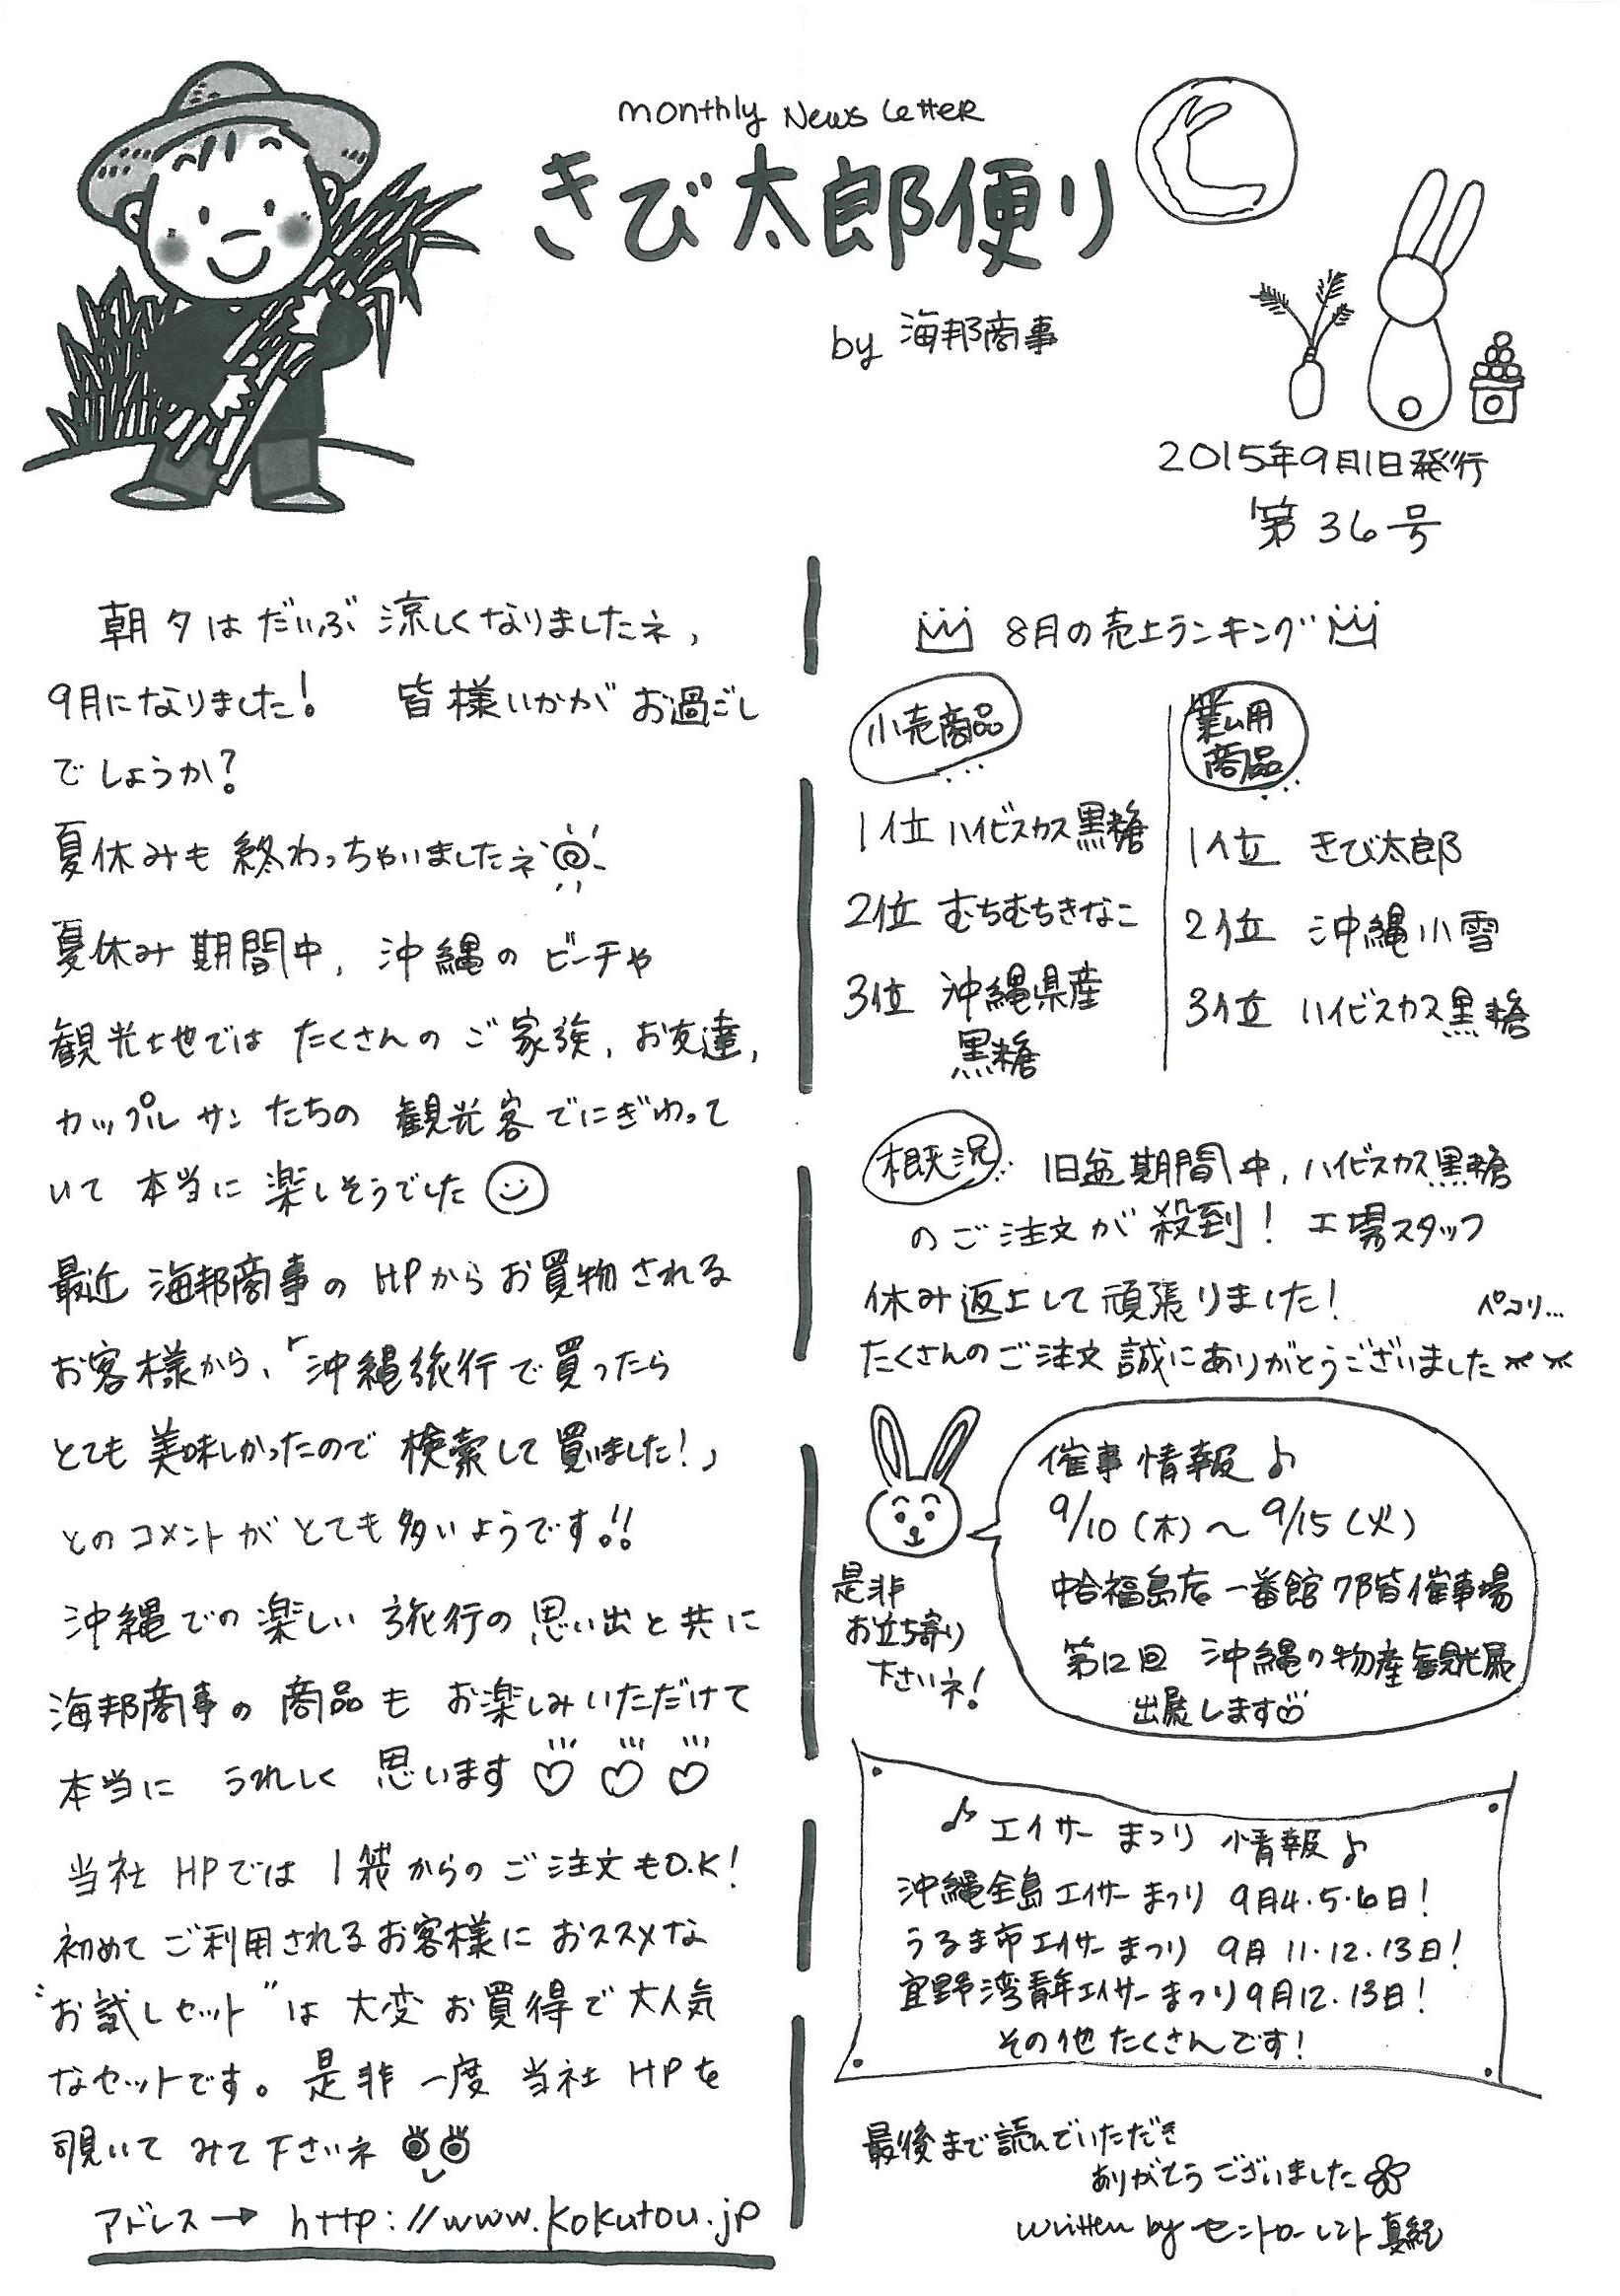 monthly News Letter
きび太郎便り
by 海邦商事
2015年9月1日発行
第36号
朝夕はだいぶ涼しくなりましたネ,
9月になりました! 皆様いかがお過ごし
でしょうか?
夏休みも終わっちゃいましたネ
夏休み期間中, 沖縄のビーチや
観光地ではたくさんのご家族, お友達,
カップルサンたちの観光客でにぎわって
いて本当に楽しそうでした
最近海邦商事のHPからお買物される
お客様から、「沖縄旅行で買ったら
とても美味しかったので検索して買いました!」
とのコメントがとても多いようです!!
沖縄での楽しい旅行の思い出と共に
海邦商事の商品もお楽しみいただけて
本当にうれしく思います♡♡♡
当社HPでは1袋からのご注文もO.K!
初めてご利用されるお客様におススメな
"お試しセット"は大変お買得で大人気
なセットです。是非一度当社HPを
覗いてみて下さいネ
アドレス→ http://www.kokutou.jp
8月の売上ランキング
小売商品
1位 ハイビスカス黒糖
2位 むちむちきなこ
3位 沖縄県産
黒糖
業ム用
商品
1位 きび太郎
2位 沖縄小雪
3位 ハイビスカス黒糖
概況 旧盆期間中, ハイビスカス黒糖
のご注文が殺到! 工場スタッフ
休み返上して頑張りました!
ペコリ...
たくさんのご注文誠にありがとうございました
催事情報♪
9/10(木)〜9/15(火)
中合福島店 一番館7階催事場
第12回 沖縄の物産観光展
出展します♡
是非
お立ち寄り
下さいネ!
♪エイサーまつり情報♪
沖縄全島エイサーまつり 9月4・5・6日!
うるま市エイサーまつり 9月11・12・13日!
宜野湾青年エイサーまつり9月12・13日!
その他たくさんです!
最後まで読んでいただき
ありがとうございました
written by セントローレント真紀